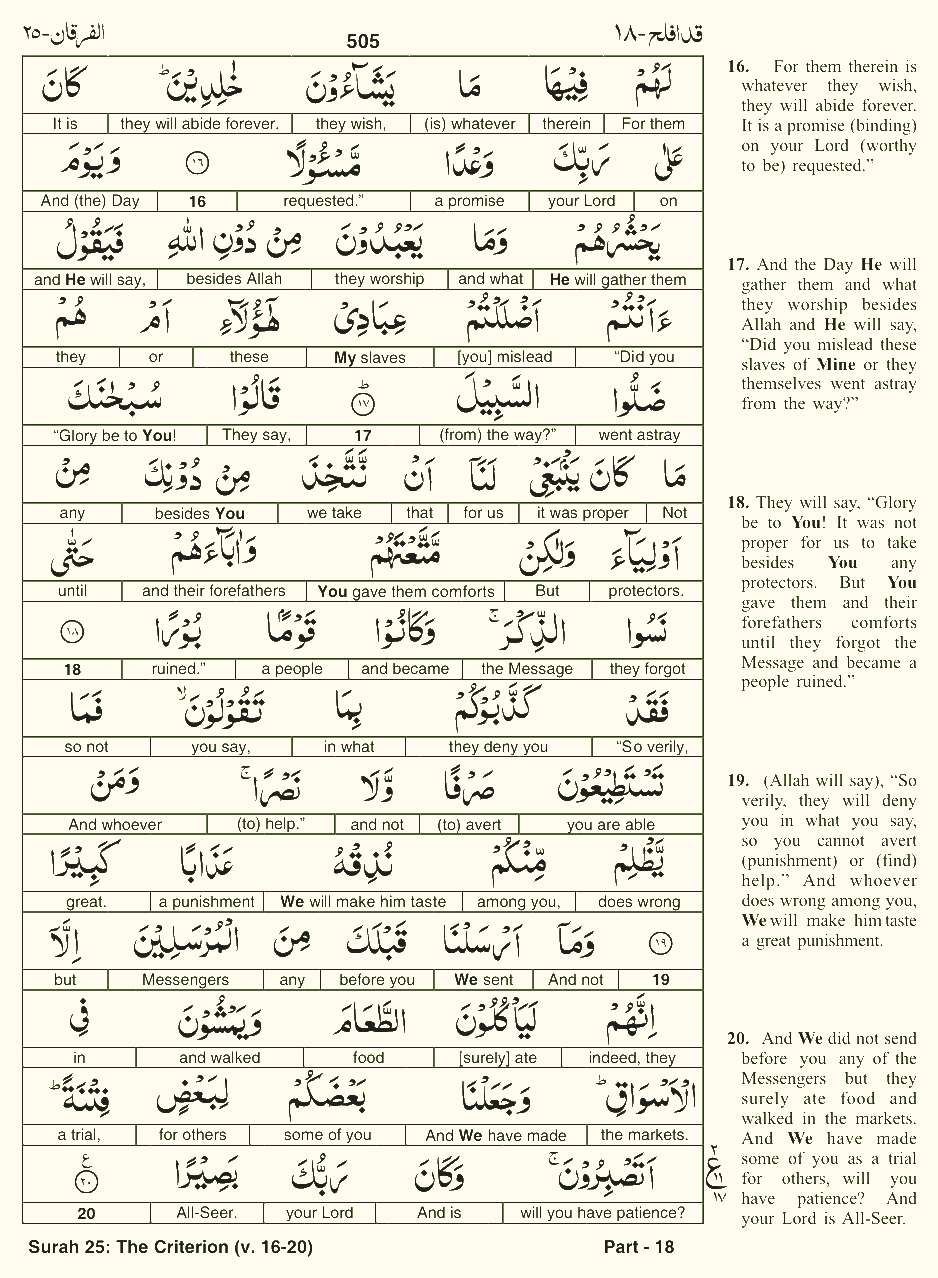 الفرقان-٢٥ 505 قدافلح-١٨
لَهُمْ فِيْهَا مَا يَشَآءُوْنَ خٰلِدِيْنَ ؕ كَانَ
It is | they will abide forever. | they wish, | (is) whatever | therein | For them
عَلٰى رَبِّكَ وَعْدًا مَّسْـُٔوْلًا ﴿١٦﴾ وَيَوْمَ
And (the) Day | 16 | requested.” | a promise | your Lord | on
يَحْشُرُهُمْ وَمَا يَعْبُدُوْنَ مِنْ دُوْنِ اللّٰهِ فَيَقُوْلُ
and He will say, | besides Allah | they worship | and what | He will gather them
ءَاَنْتُمْ اَضْلَلْتُمْ عِبَادِيْ هٰٓؤُلَآءِ اَمْ هُمْ
they | or | these | My slaves | [you] mislead | “Did you
ضَلُّوا السَّبِيْلَ ؕ﴿١٧﴾ قَالُوْا سُبْحٰنَكَ
“Glory be to You! | They say, | 17 | (from) the way?” | went astray
مَا كَانَ يَنْۢبَغِيْ لَنَآ اَنْ نَّتَّخِذَ مِنْ دُوْنِكَ مِنْ
any | besides You | we take | that | for us | it was proper | Not
اَوْلِيَآءَ وَلٰكِنْ مَّتَّعْتَهُمْ وَاٰبَآءَهُمْ حَتّٰى
until | and their forefathers | You gave them comforts | But | protectors.
نَسُوا الذِّكْرَ ۚ وَكَانُوْا قَوْمًۢا بُوْرًا ﴿١٨﴾
18 | ruined.” | a people | and became | the Message | they forgot
فَقَدْ كَذَّبُوْكُمْ بِمَا تَقُوْلُوْنَ ۙ فَمَا
so not | you say, | in what | they deny you | “So verily,
تَسْتَطِيْعُوْنَ صَرْفًا وَّلَا نَصْرًا ۚ وَمَنْ
And whoever | (to) help.” | and not | (to) avert | you are able
يَّظْلِمْ مِّنْكُمْ نُذِقْهُ عَذَابًا كَبِيْرًا
great. | a punishment | We will make him taste | among you, | does wrong
﴿١٩﴾ وَمَآ اَرْسَلْنَا قَبْلَكَ مِنَ الْمُرْسَلِيْنَ اِلَّآ
but | Messengers | any | before you | We sent | And not | 19
اِنَّهُمْ لَيَاْكُلُوْنَ الطَّعَامَ وَيَمْشُوْنَ فِي
in | and walked | food | [surely] ate | indeed, they
الْاَسْوَاقِ ؕ وَجَعَلْنَا بَعْضَكُمْ لِبَعْضٍ فِتْنَةً ؕ
a trial, | for others | some of you | And We have made | the markets.
اَتَصْبِرُوْنَ ۚ وَكَانَ رَبُّكَ بَصِيْرًا ﴿٢٠﴾ ع
20 | All-Seer. | your Lord | And is | will you have patience?
٢
ع ١١
١٧
16. For them therein is
whatever they wish,
they will abide forever.
It is a promise (binding)
on your Lord (worthy
to be) requested.”
17. And the Day He will
gather them and what
they worship besides
Allah and He will say,
“Did you mislead these
slaves of Mine or they
themselves went astray
from the way?”
18. They will say, “Glory
be to You! It was not
proper for us to take
besides You any
protectors. But You
gave them and their
forefathers comforts
until they forgot the
Message and became a
people ruined.”
19. (Allah will say), “So
verily, they will deny
you in what you say,
so you cannot avert
(punishment) or (find)
help.” And whoever
does wrong among you,
We will make him taste
a great punishment.
20. And We did not send
before you any of the
Messengers but they
surely ate food and
walked in the markets.
And We have made
some of you as a trial
for others, will you
have patience? And
your Lord is All-Seer.
Surah 25: The Criterion (v. 16-20) Part - 18